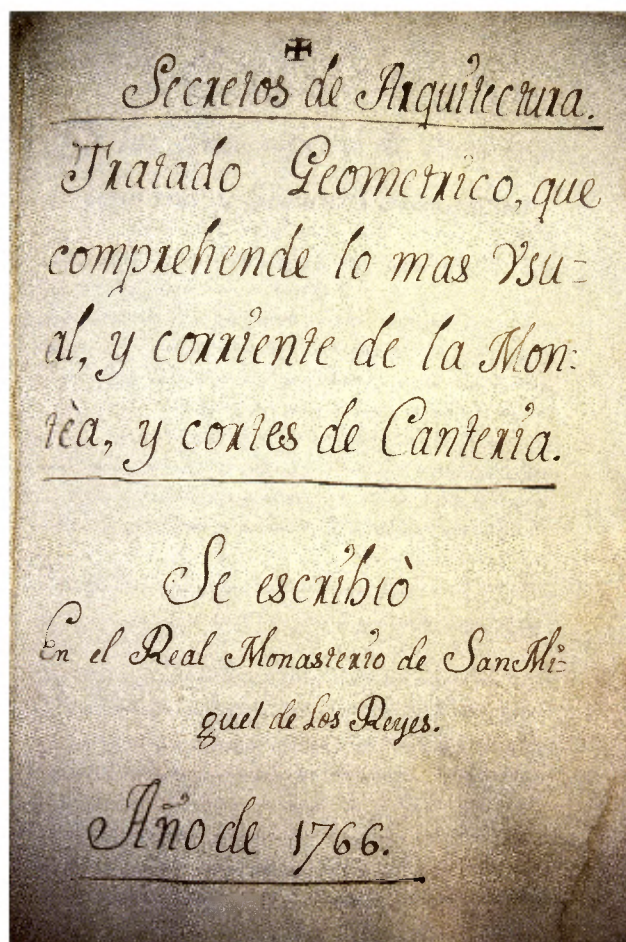 ✠
Secretos de Arquitectura.
Tratado Geometrico, que
comprehende lo mas Vsu=
al, y corriente de la Mon:
tèa, y cortes de Canteria.
Se escribiò
En el Real Monasterio de San Mi=
guel de los Reyes.
Año de 1766.